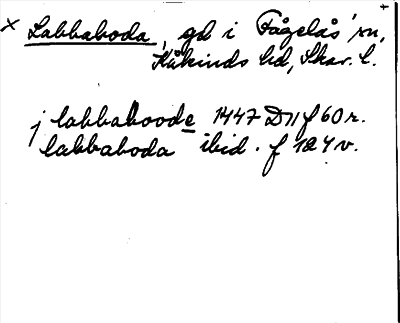 × Labbaboda, gd i Fågelås sn,
Kåkinds hd, Skar. l.
j labbaboode 1447 D11 f 60 r.
labbaboda ibid. f 124 v.